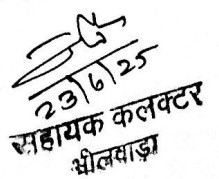 23/6/25
सहायक कलक्टर
भीलवाड़ा